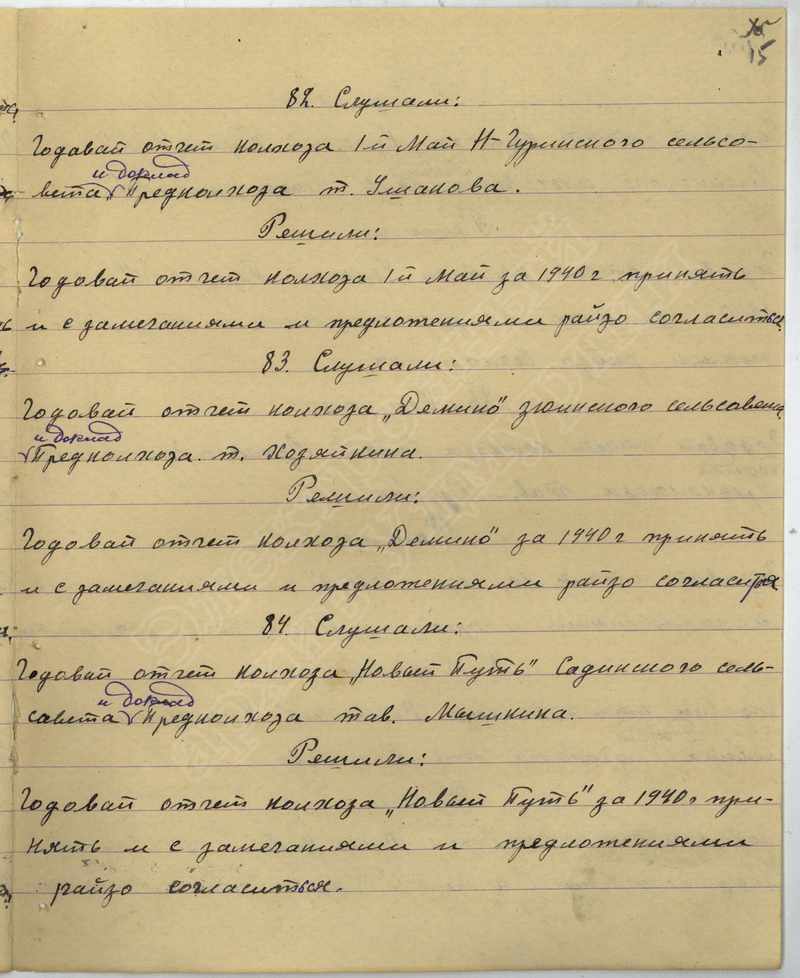 15
82. Слушали:
Годовай отчет колхоза 1-й Май Н-Гуринского сельсо-
и доклад
вета Предколхоза т. Ушакова.
Решили:
Годовай отчет колхоза 1й Май за 1940 г принять
и с замечаниями и предложениями райзо согласиться
83. Слушали:
Годовай отчет колхоза „Демино" зюинского сельсовета
и доклад
Предколхоза. т. Хозяйкина.
Решили:
Годовай отчет колхоза „Демино" за 1940 г принять
и с замечаниями и предложениями райзо согласиться
84. Слушали:
Годовай отчет колхоза „Новый Путь" Садинского сель-
и доклад
савета Предколхоза тав. Мышкина.
Решили:
Годовай отчет колхоза „Новый Путь" за 1940 г при-
нять и с замечаниями и предложениями
райзо согласиться.